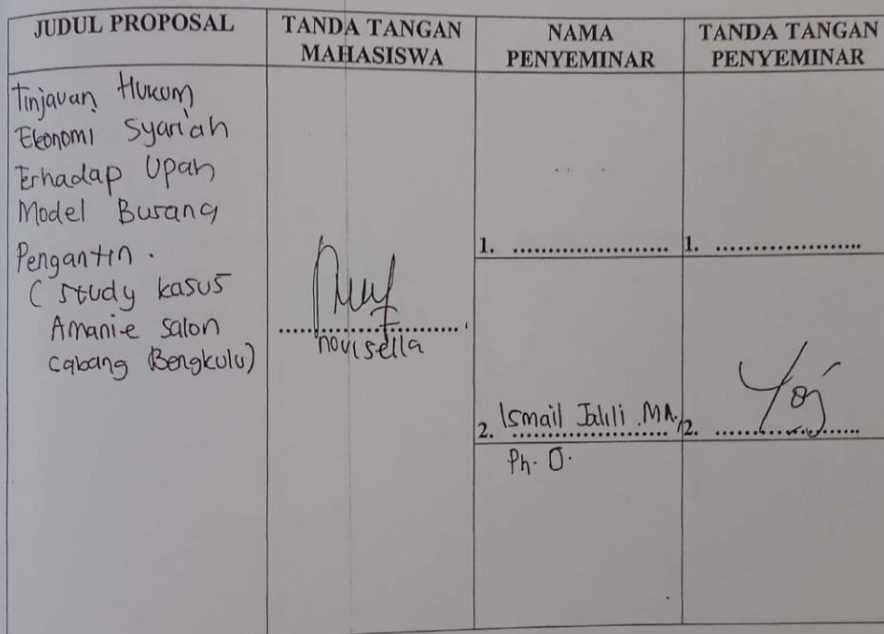 JUDUL PROPOSAL
TANDA TANGAN
MAHASISWA
NAMA
PENYEMINAR
TANDA TANGAN
PENYEMINAR
Tinjauan Hukum
Ekonomi Syari'ah
Erhadap Upah
Model Busana
Pengantin.
( study kasus
Amanie Salon
Cabang (Bengkulu)
novisella
1. .....................
1. .....................
2. Ismail Jalili .MA.,
Ph. D.
2. .....................